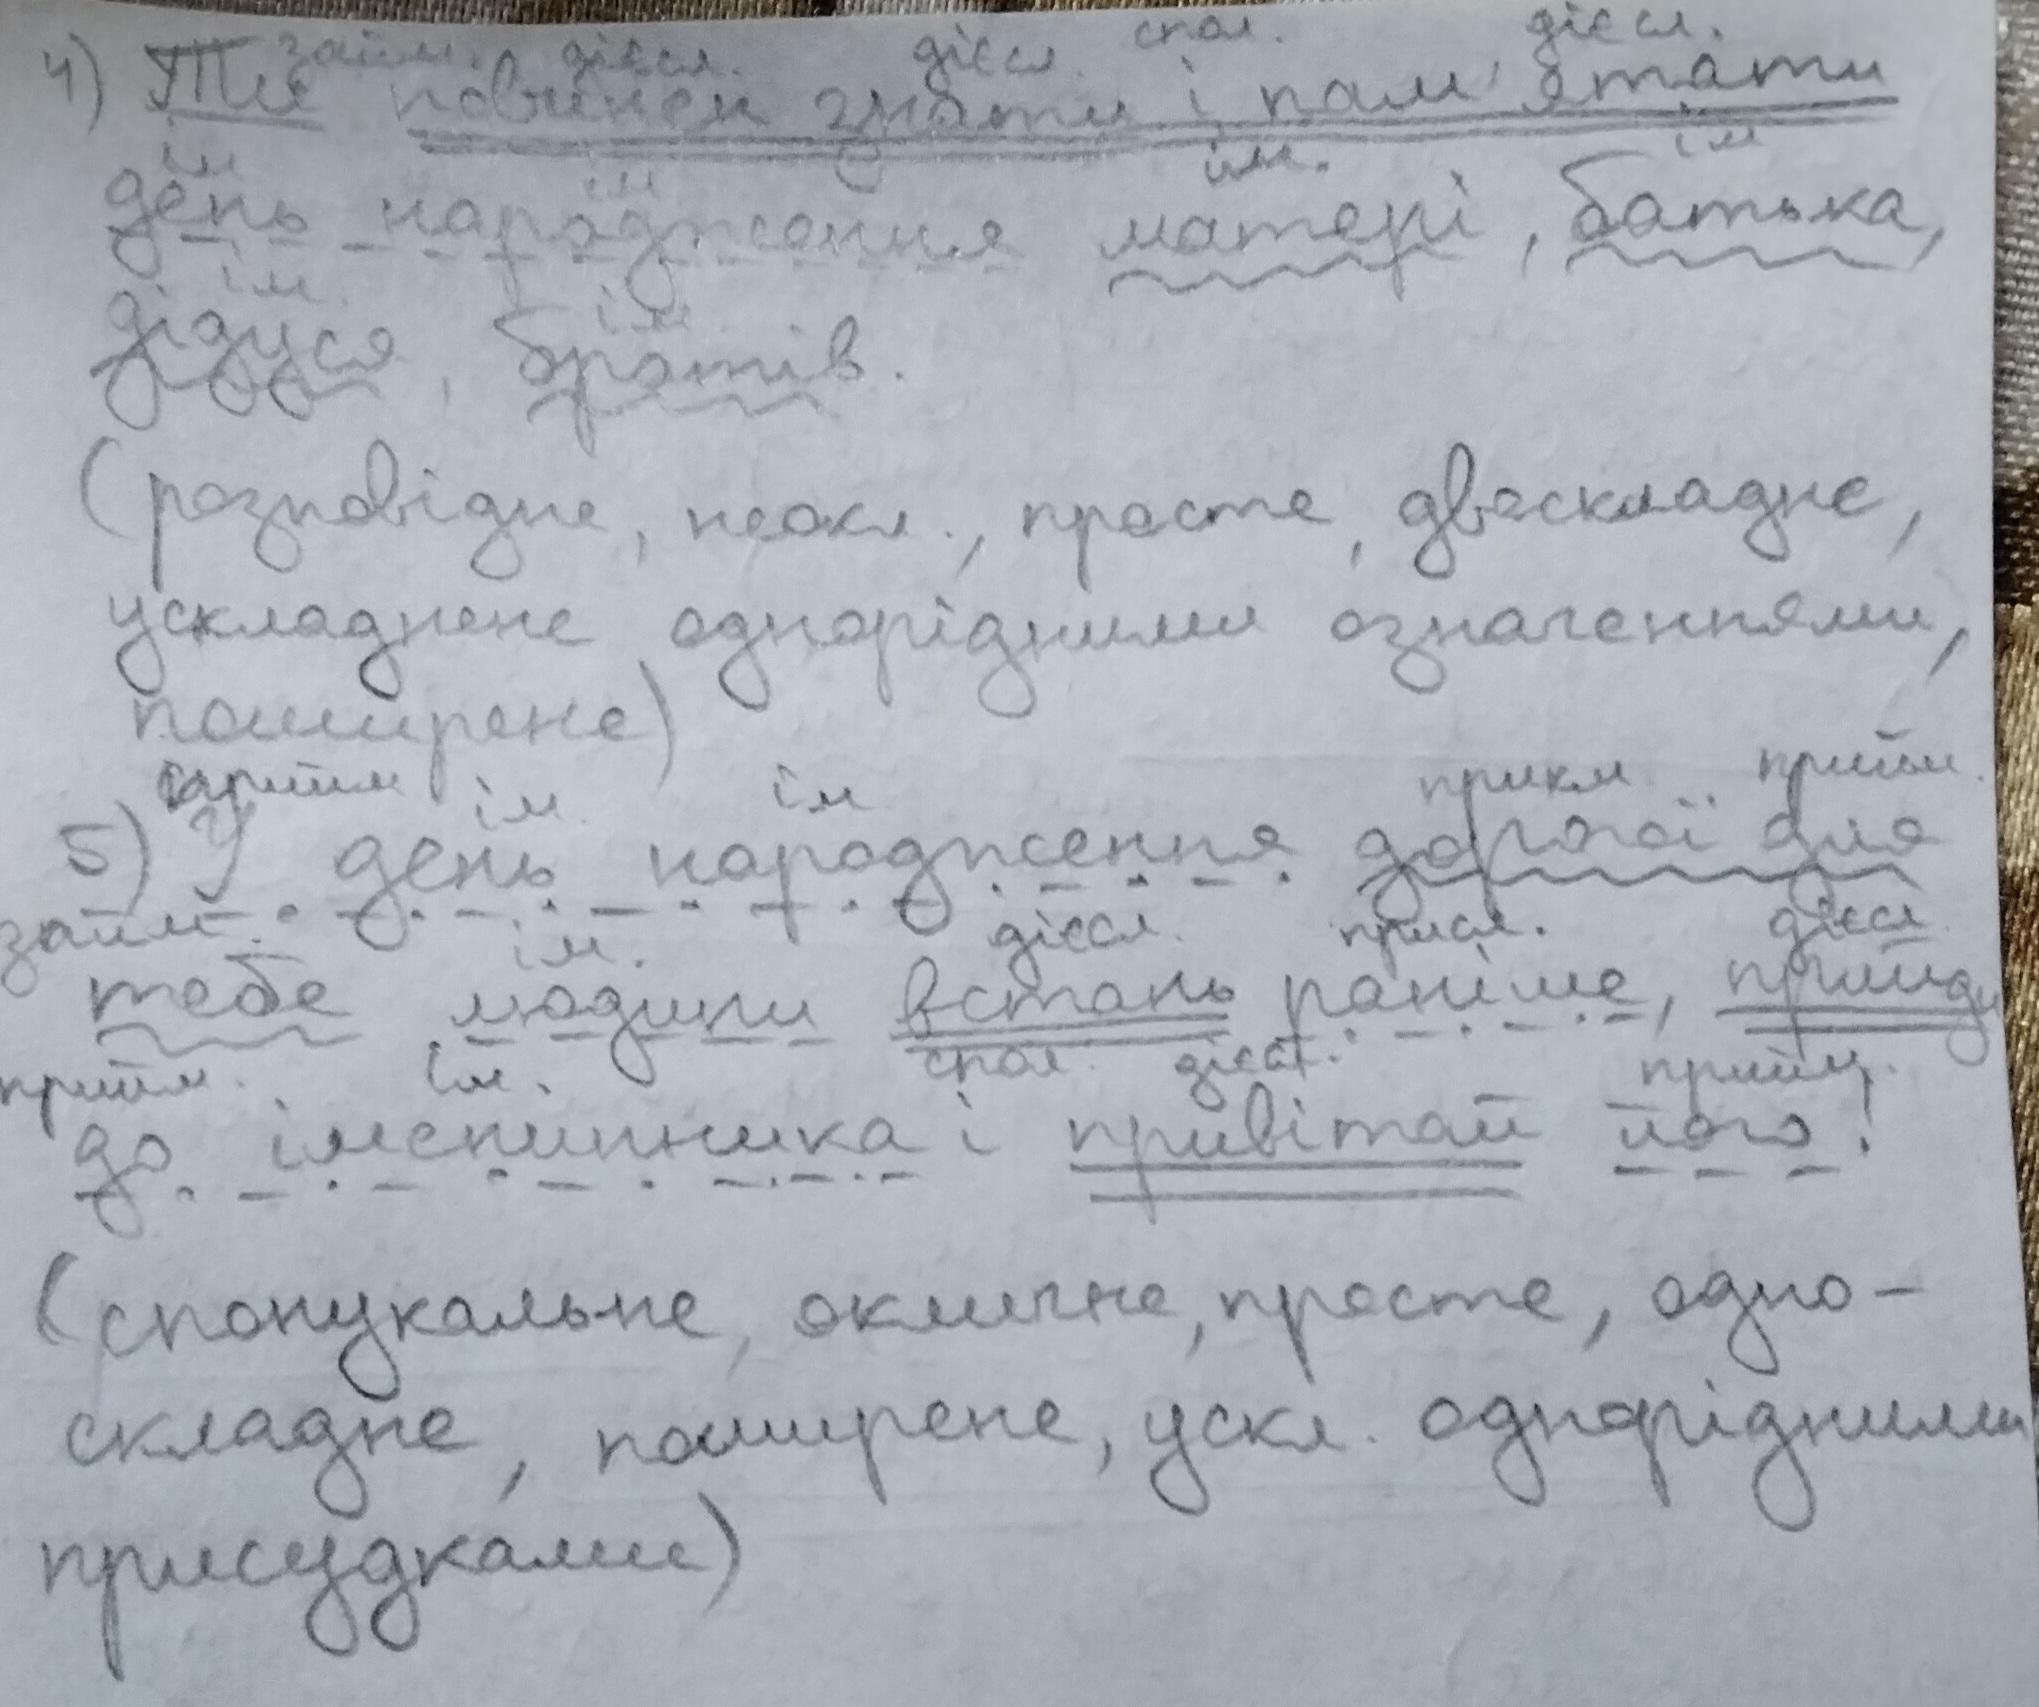 займ. дієсл. дієсл. спол. дієсл.
4) Ти повинен знати і пам'ятати
ім ім ім. ім
день народження матері, батька,
ім. ім.
дідуся, братів.
(розповідне, неокл., просте, двоскладне,
ускладнене однорідними означеннями,
поширене)
прийм ім. ім прикм прийм.
5) У день народження дорогої для
займ. ім. дієсл. присл. дієсл.
тебе людини встань раніше, прийди
прийм. ім. спол. дієсл. прийм.
до іменинника і привітай його!
(спонукальне, окличне, просте, одно-
складне, поширене, ускл. однорідними
присудками)